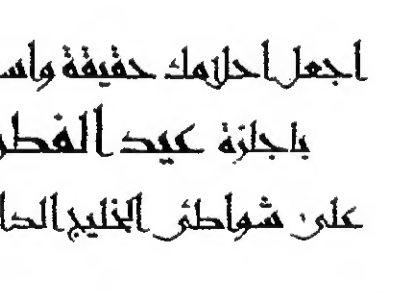 اجعل احلامك حقيقة واس
باجازة عيد الفطر
على شواطئ الخليج الدا